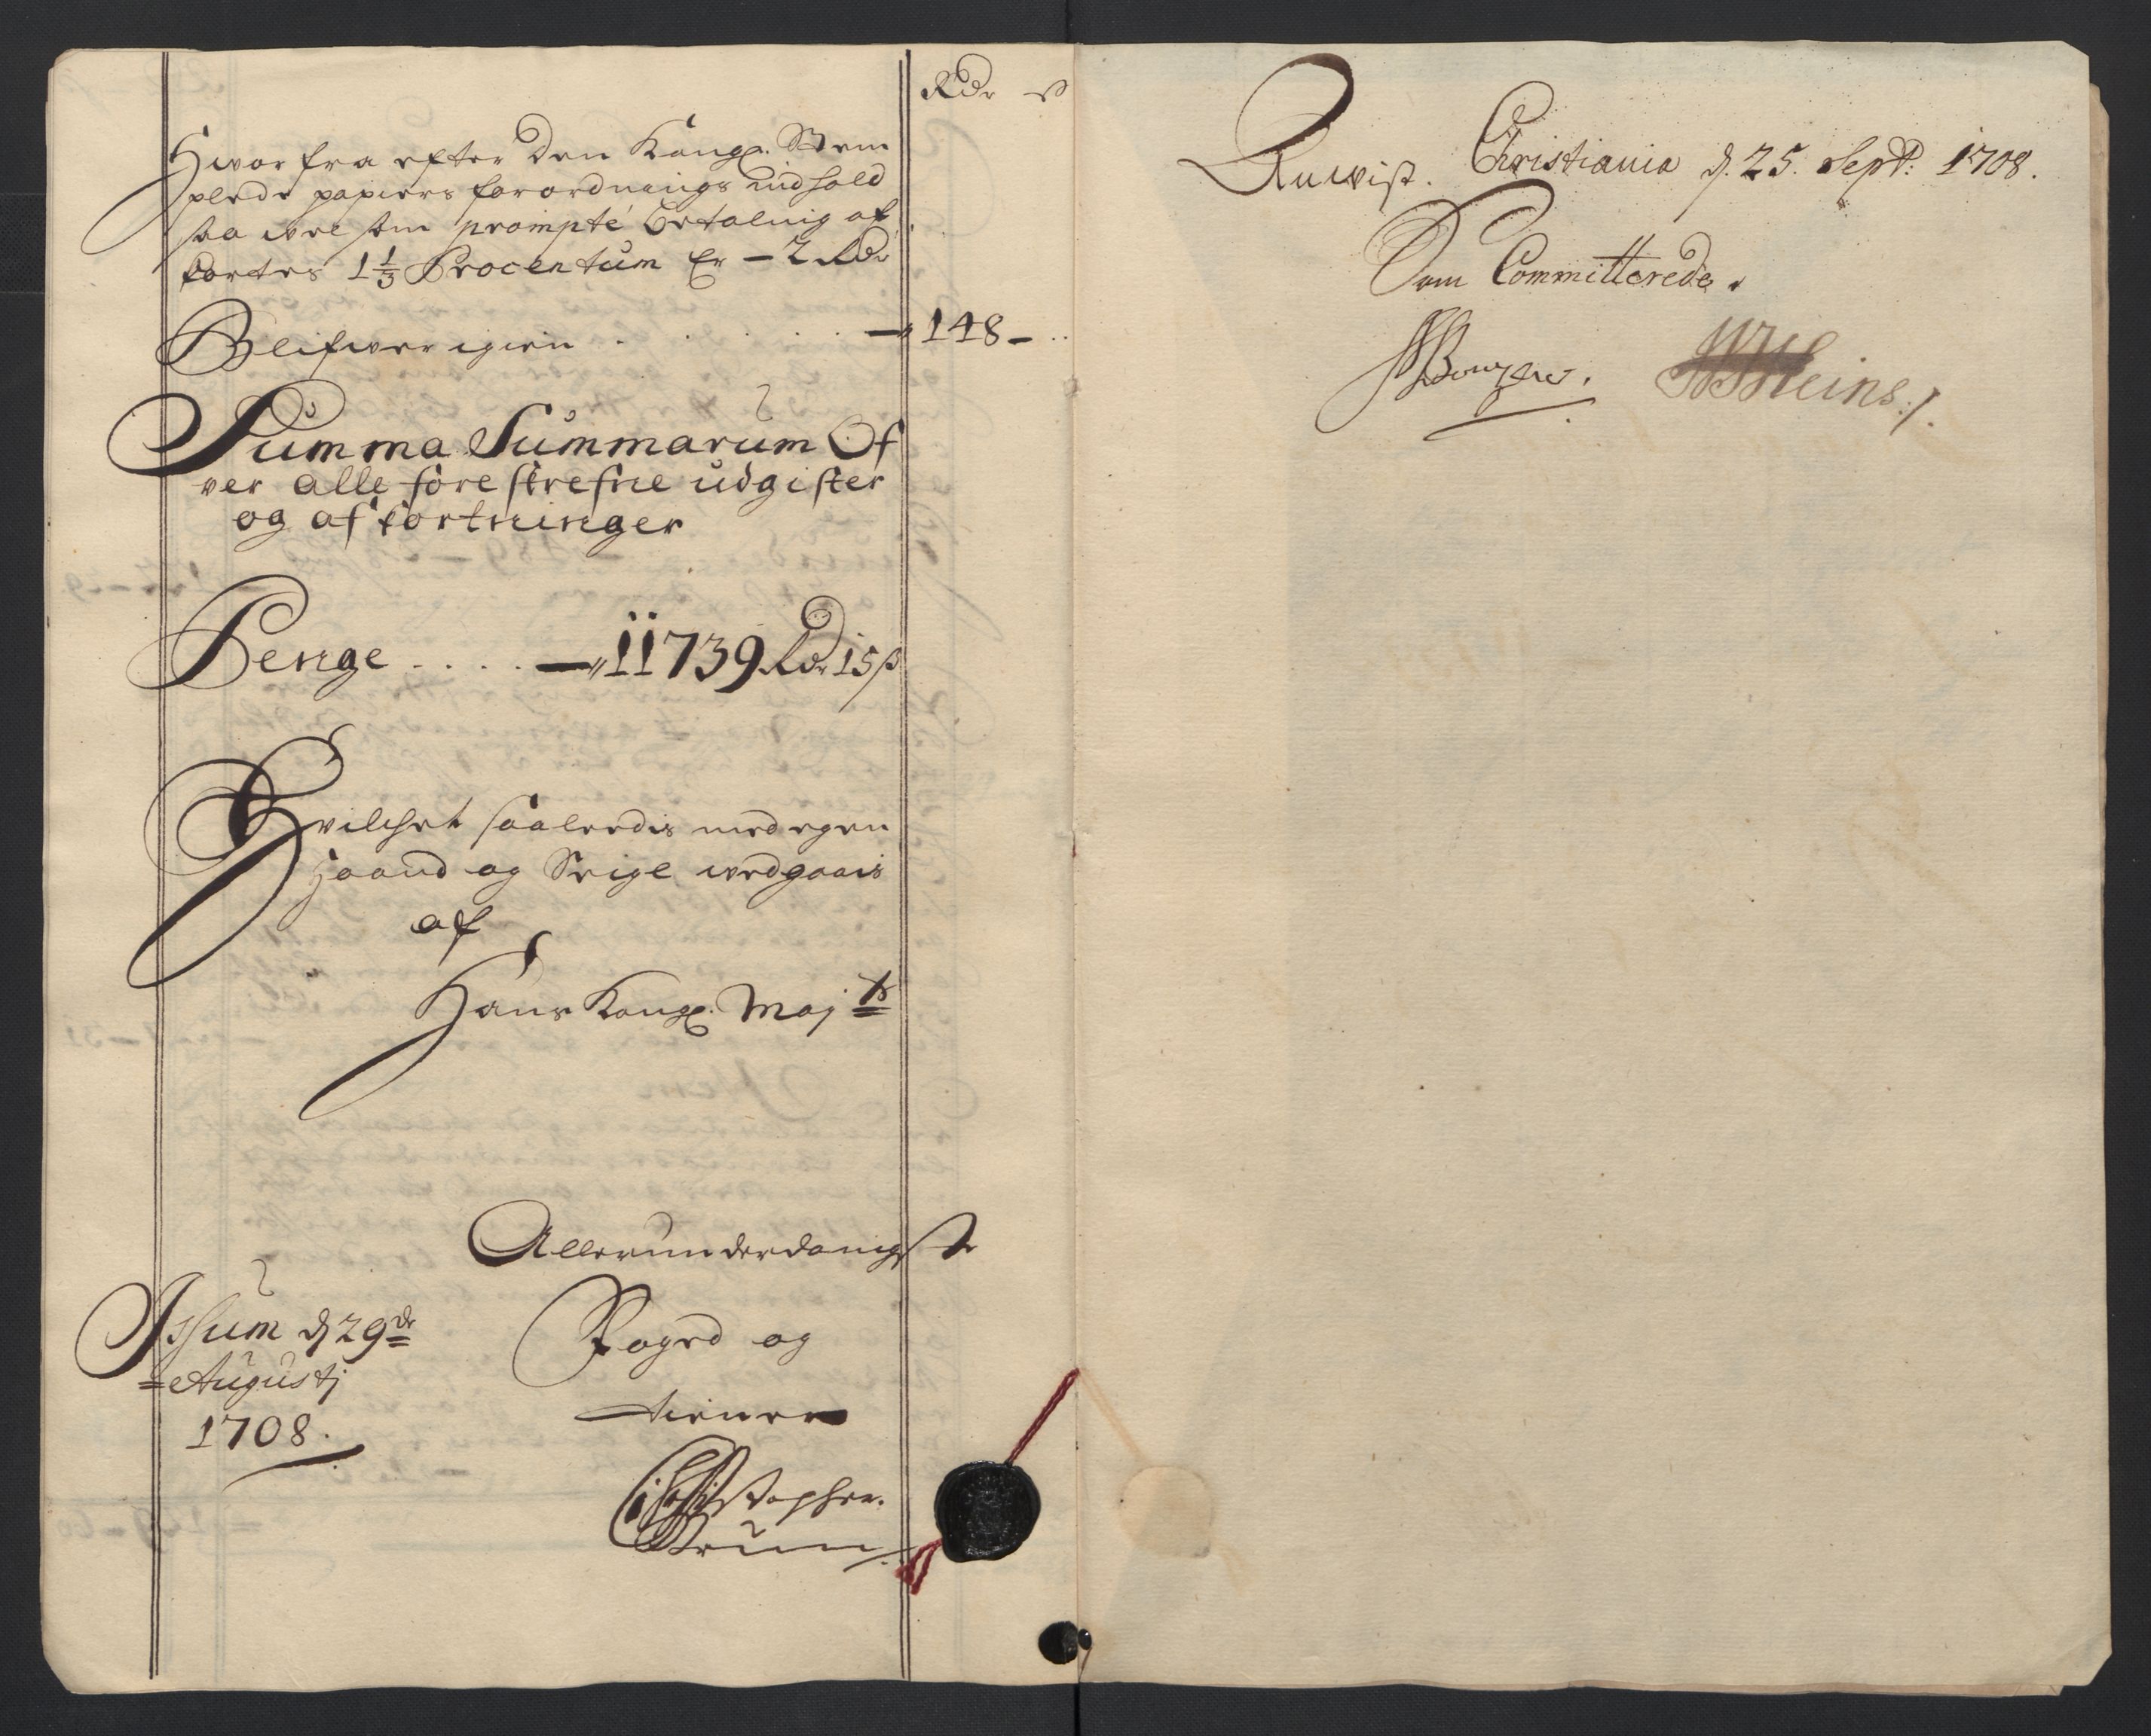 Rdr ß
Hvor fra efter Den Kongl. Stem
plede papiers forordnings indhold
saa vel som prompte betaling af
kortes 1⅓ Procentum Er – 2 Rdr
Blifver igien . . . . . – 148 – ..
Summa Summarum Of
ver alle fore skrefne udgifter
og af kortninger
Penge . . . . – 11739 Rdr 15 ß
Hvilchet saaledis med egen
Haand og Seigl vedgaais
af
Hans Kongl. Maj ts
Allerunderdanigste
Foged og
tiener
Christopher
Brun
Issum d 29de
Augustj
1708.
Rewist. Christiania d. 25. Sept: 1708.
Som Committerede.